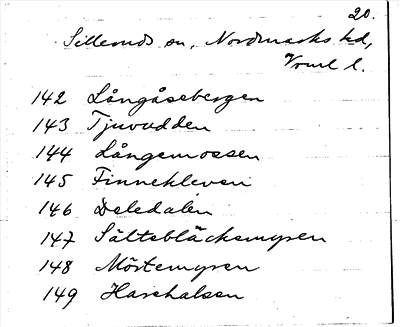 20.
Silleruds sn, Nordmarks hd,
Vrml l.
142 Långåsebergen
143 Tjuvudden
144 Långemossen
145 Finnekleven
146 Deledalen
147 Sältebläcksmyren
148 Mörtemyren
149 Harehalsen